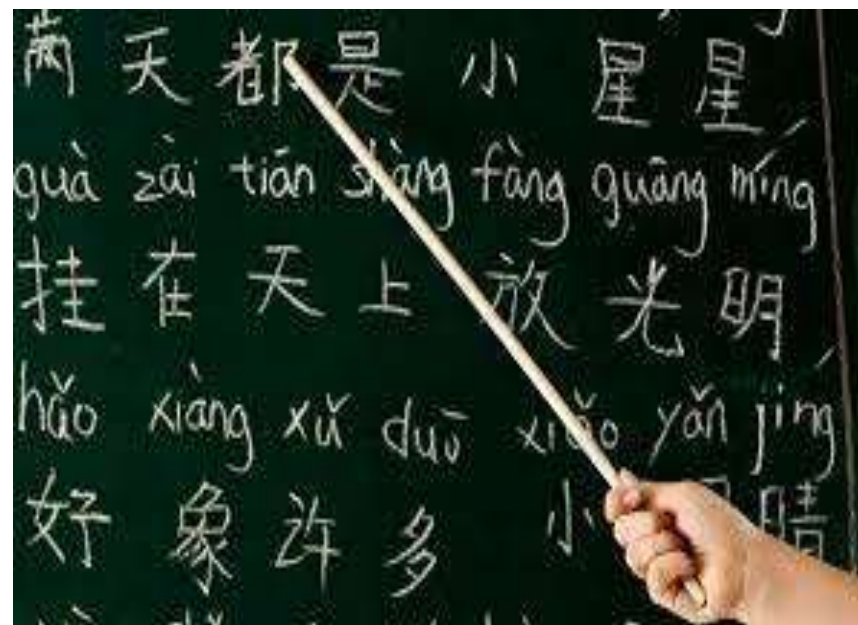 满天都是小星星
guà zài tiān shàng fàng guāng míng
挂在天上放光明
hǎo xiàng xǔ duō xiǎo yǎn jíng
好象许多小睛